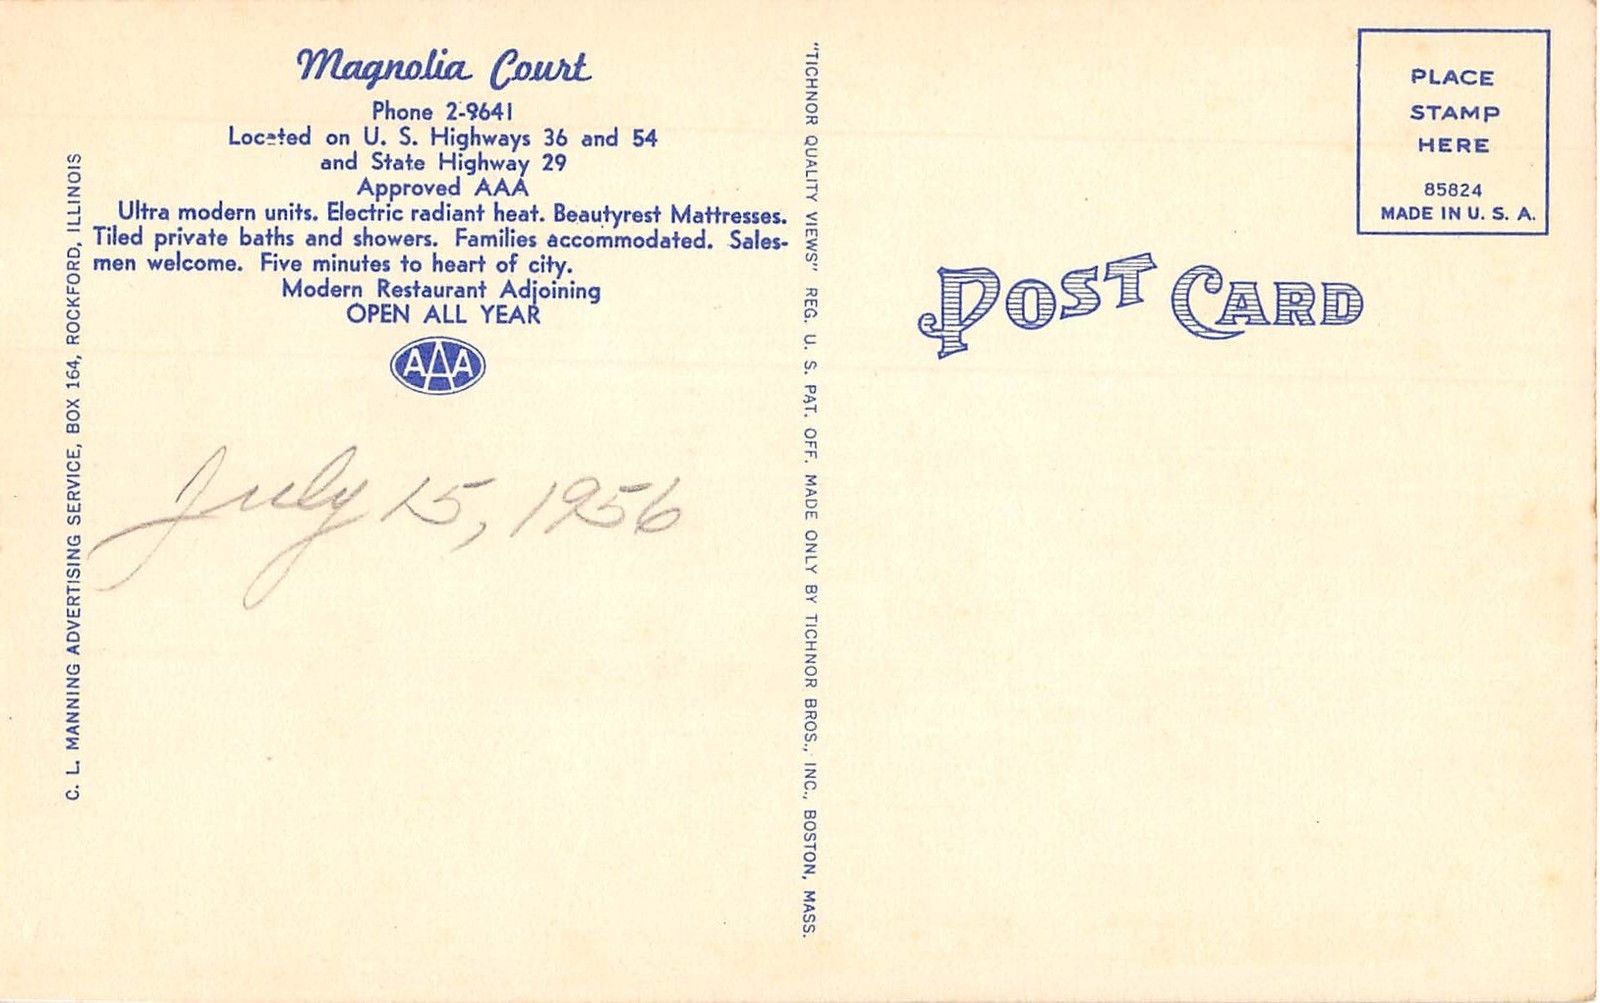 Magnolia Court
Phone 2-9641
Located on U. S. Highways 36 and 54
and State Highway 29
Approved AAA
Ultra modern units. Electric radiant heat. Beautyrest Mattresses.
Tiled private baths and showers. Families accommodated. Sales-
men welcome. Five minutes to heart of city.
Modern Restaurant Adjoining
OPEN ALL YEAR
AAA
July 15, 1956
C. L. MANNING ADVERTISING SERVICE, BOX 164, ROCKFORD, ILLINOIS
"TICHNOR QUALITY VIEWS" REG. U. S. PAT. OFF. MADE ONLY BY TICHNOR BROS., INC., BOSTON, MASS.
POST CARD
PLACE
STAMP
HERE
85824
MADE IN U. S. A.